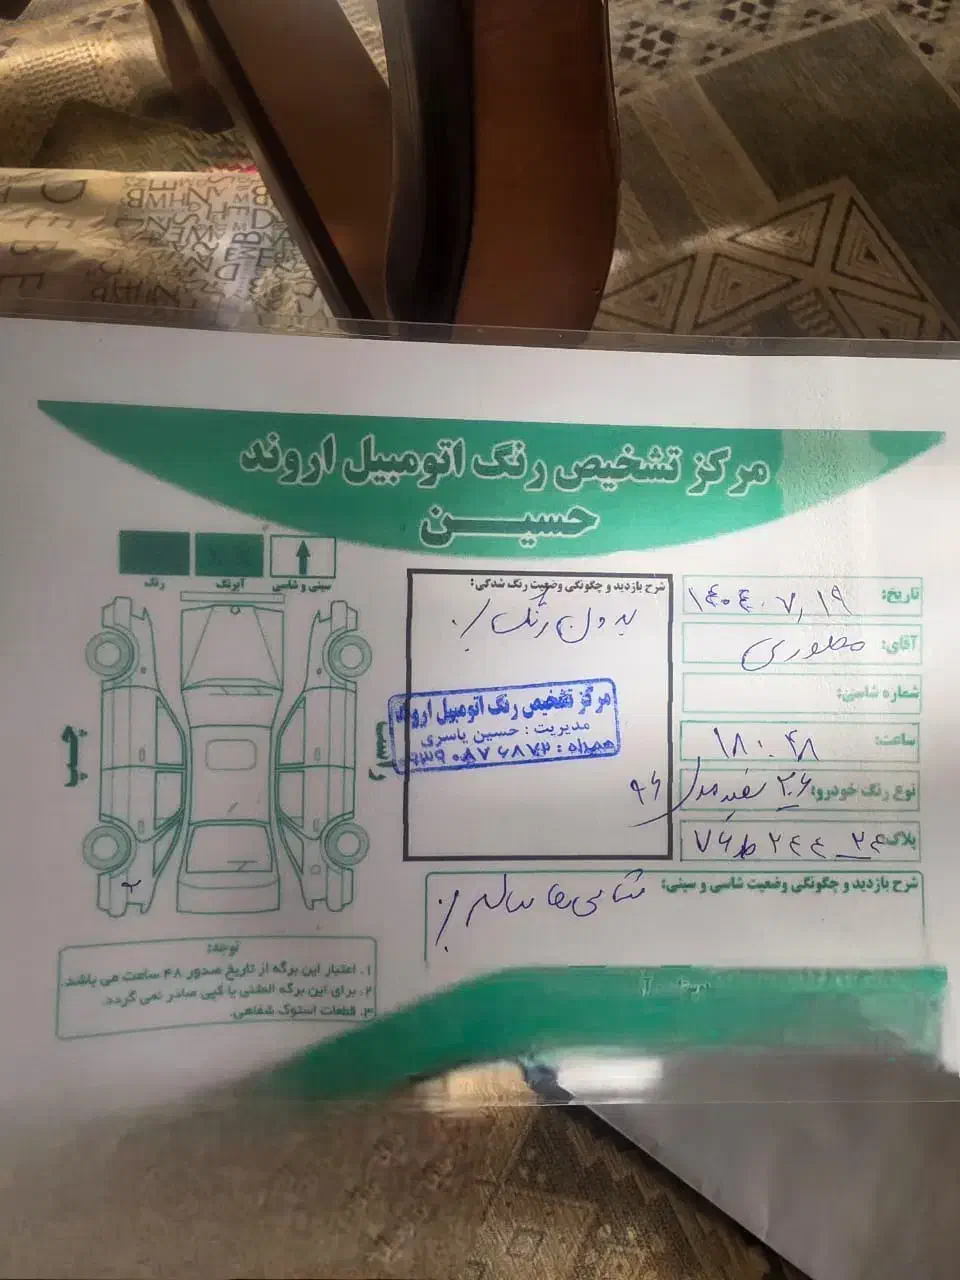 مرکز تشخیص رنگ اتومبیل اروند
حسین
سینی و شاسی
آبرنگ
رنگ
تاریخ: ۱۴۰۴،۷،۱۹
آقای:
شماره شاسی:
ساعت: ۱۸:۴۸
نوع رنگ خودرو: ۲۰۶ سفید مدل ۹۶
پلاک: ۲۴ ۲۴۴ ط ۷۶
شرح بازدید و چگونگی وضعیت رنگ شدگی:
بدون رنگ
مرکز تشخیص رنگ اتومبیل اروند
مدیریت: حسین یاسری
همراه:
شرح بازدید و چگونگی وضعیت شاسی و سینی:
شاسی‌ها سالم
راست
چپ
توجه:
۱. اعتبار این برگه از تاریخ صدور ۴۸ ساعت می باشد.
۲. برای این برگه المثنی یا کپی صادر نمی گردد.
۳. قطعات استوک شفاهی.